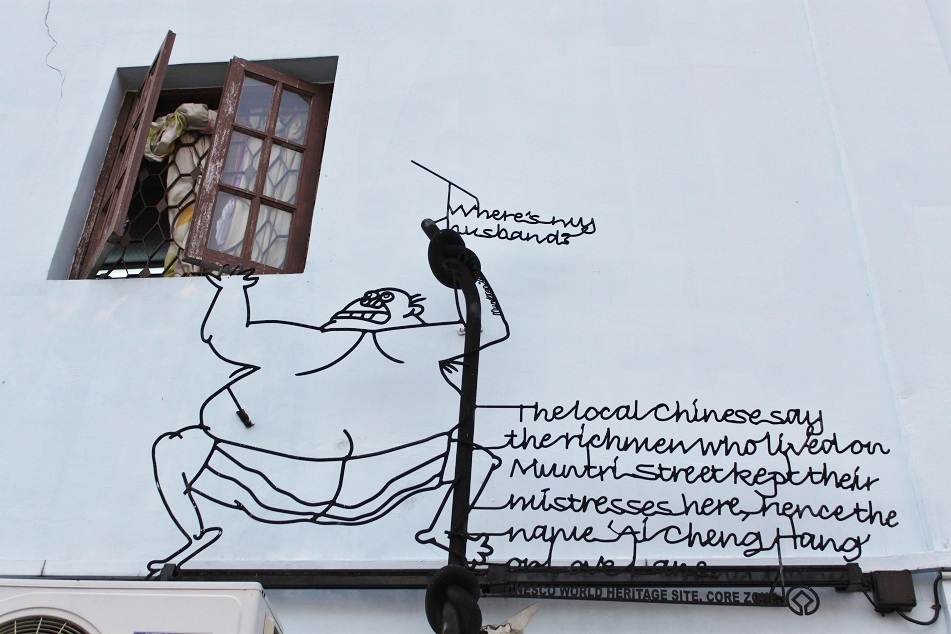 Where's my
husband?
The local Chinese say
the rich men who lived on
Muntri Street kept their
mistresses here, hence the
name 'Ai Cheng Hang
or Love Lane.
UNESCO WORLD HERITAGE SITE, CORE ZONE